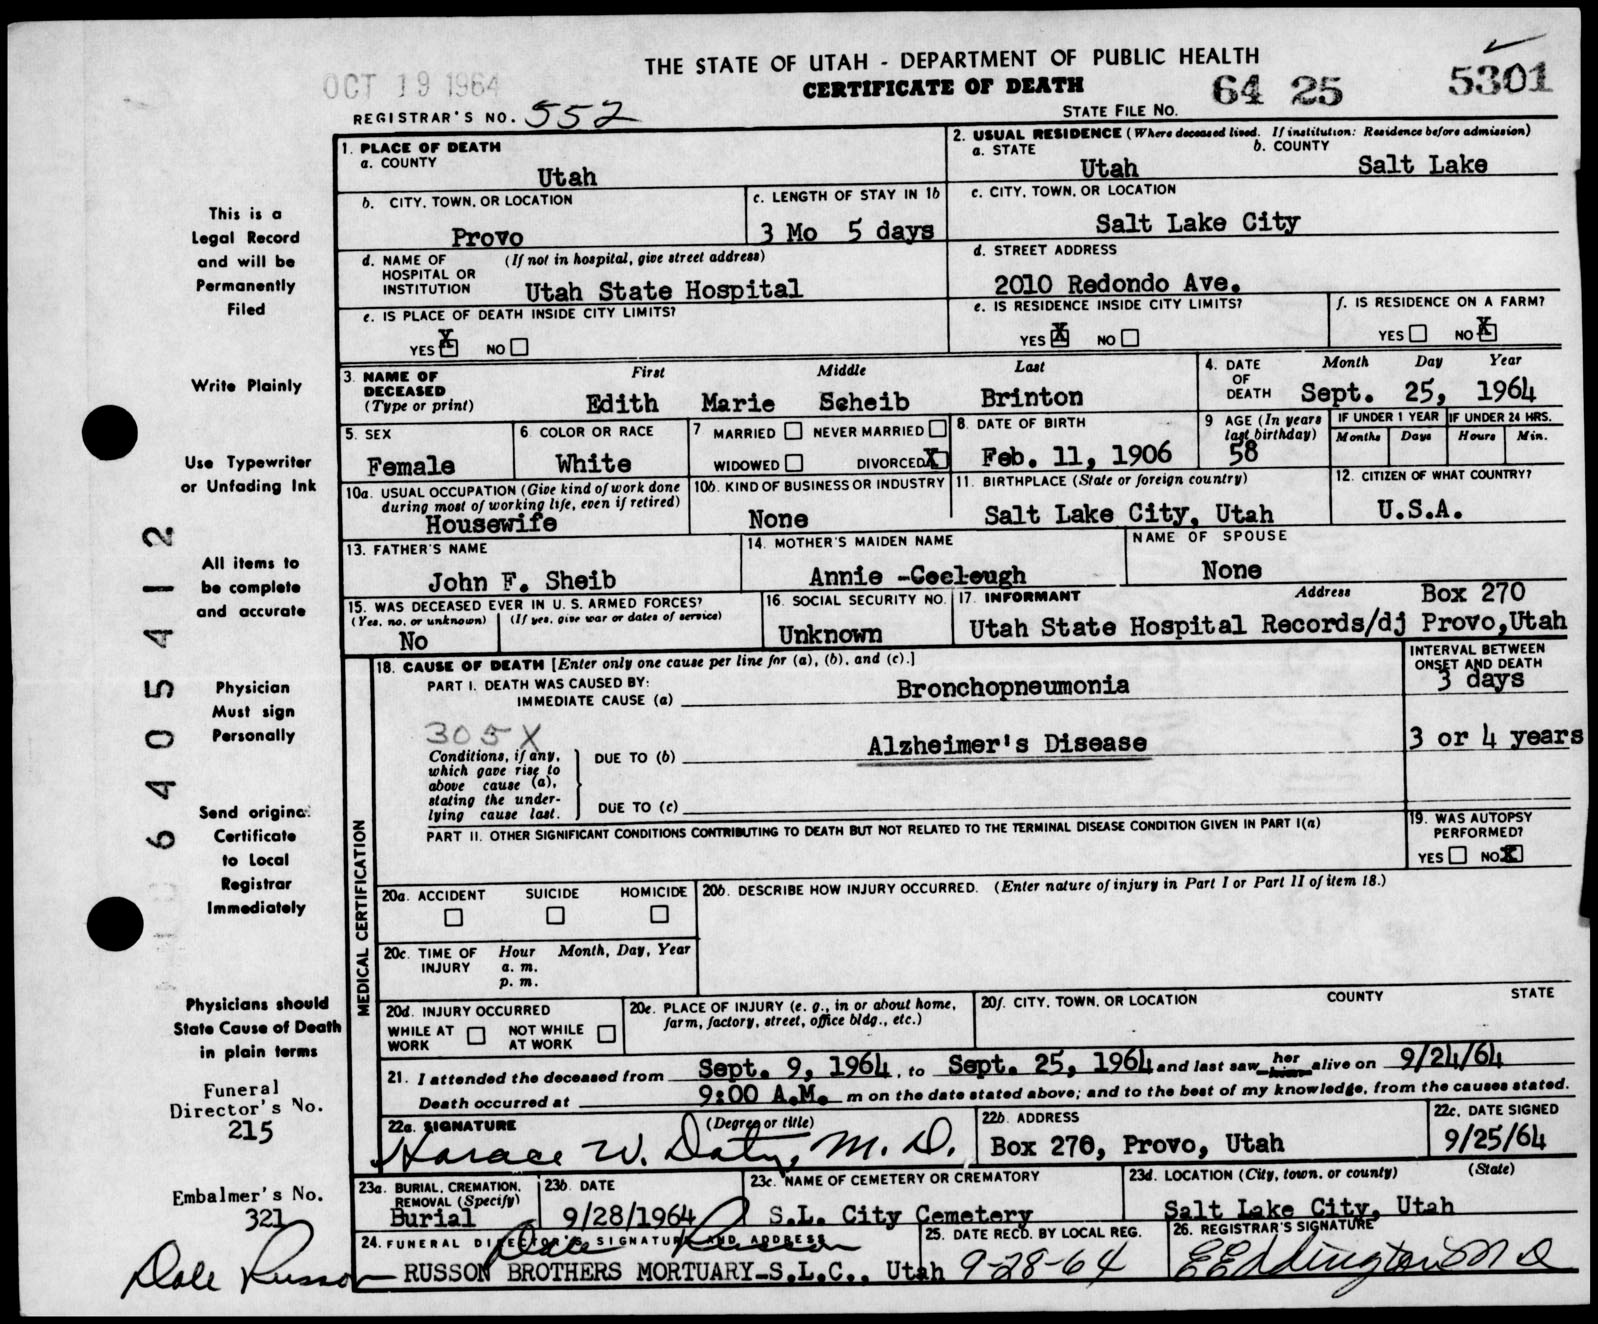 THE STATE OF UTAH - DEPARTMENT OF PUBLIC HEALTH
OCT 19 1964
CERTIFICATE OF DEATH
64 25 5301
REGISTRAR'S NO. 552
STATE FILE NO.
1. PLACE OF DEATH
a. COUNTY
Utah
2. USUAL RESIDENCE (Where deceased lived. If institution: Residence before admission)
a. STATE b. COUNTY
Utah Salt Lake
b. CITY, TOWN, OR LOCATION
Provo
c. LENGTH OF STAY IN 1b
3 Mo 5 days
c. CITY, TOWN, OR LOCATION
Salt Lake City
d. NAME OF HOSPITAL OR INSTITUTION (If not in hospital, give street address)
Utah State Hospital
d. STREET ADDRESS
2010 Redondo Ave.
e. IS PLACE OF DEATH INSIDE CITY LIMITS?
YES X NO
e. IS RESIDENCE INSIDE CITY LIMITS?
YES X NO
f. IS RESIDENCE ON A FARM?
YES NO X
3. NAME OF DECEASED (Type or print)
First Middle Last
Edith Marie Scheib Brinton
4. DATE OF DEATH
Month Day Year
Sept. 25, 1964
5. SEX
Female
6. COLOR OR RACE
White
7 MARRIED NEVER MARRIED
WIDOWED DIVORCED X
8. DATE OF BIRTH
Feb. 11, 1906
9 AGE (In years last birthday)
58
IF UNDER 1 YEAR IF UNDER 24 HRS.
Months Days Hours Min.
10a. USUAL OCCUPATION (Give kind of work done during most of working life, even if retired)
Housewife
10b. KIND OF BUSINESS OR INDUSTRY
None
11. BIRTHPLACE (State or foreign country)
Salt Lake City, Utah
12. CITIZEN OF WHAT COUNTRY?
U.S.A.
13. FATHER'S NAME
John F. Sheib
14. MOTHER'S MAIDEN NAME
Annie -Coclough
NAME OF SPOUSE
None
15. WAS DECEASED EVER IN U.S. ARMED FORCES?
(Yes, no, or unknown) (If yes, give war or dates of service)
No
16. SOCIAL SECURITY NO.
Unknown
17. INFORMANT Address
Box 270
Utah State Hospital Records/dj Provo,Utah
MEDICAL CERTIFICATION
18. CAUSE OF DEATH [Enter only one cause per line for (a), (b), and (c).]
INTERVAL BETWEEN ONSET AND DEATH
PART I. DEATH WAS CAUSED BY:
IMMEDIATE CAUSE (a) Bronchopneumonia 3 days
305X
Conditions, if any, which gave rise to above cause (a), stating the underlying cause last.
DUE TO (b) Alzheimer's Disease 3 or 4 years
DUE TO (c)
PART II. OTHER SIGNIFICANT CONDITIONS CONTRIBUTING TO DEATH BUT NOT RELATED TO THE TERMINAL DISEASE CONDITION GIVEN IN PART I(a)
19. WAS AUTOPSY PERFORMED?
YES NO X
20a. ACCIDENT SUICIDE HOMICIDE
20b. DESCRIBE HOW INJURY OCCURRED. (Enter nature of injury in Part I or Part II of item 18.)
20c. TIME OF INJURY Hour Month, Day, Year
a. m.
p. m.
20d. INJURY OCCURRED
WHILE AT WORK NOT WHILE AT WORK
20e. PLACE OF INJURY (e. g., in or about home, farm, factory, street, office bldg., etc.)
20f. CITY, TOWN, OR LOCATION COUNTY STATE
21. I attended the deceased from Sept. 9, 1964, to Sept. 25, 1964 and last saw her him alive on 9/24/64
Death occurred at 9:00 A.M. m on the date stated above; and to the best of my knowledge, from the causes stated.
22a. SIGNATURE (Degree or title)
Horace W. Daty, M. D.
22b. ADDRESS
Box 270, Provo, Utah
22c. DATE SIGNED
9/25/64
23a. BURIAL, CREMATION, REMOVAL (Specify)
Burial
23b. DATE
9/28/1964
23c. NAME OF CEMETERY OR CREMATORY
S.L. City Cemetery
23d. LOCATION (City, town, or county) (State)
Salt Lake City, Utah
24. FUNERAL DIRECTOR'S SIGNATURE AND ADDRESS
Dale Russon
RUSSON BROTHERS MORTUARY-S.L.C., Utah
25. DATE RECD. BY LOCAL REG.
9-28-64
26. REGISTRAR'S SIGNATURE
EEddington M D
This is a
Legal Record
and will be
Permanently
Filed
Write Plainly
Use Typewriter
or Unfading Ink
All items to
be complete
and accurate
Physician
Must sign
Personally
Send original
Certificate
to Local
Registrar
Immediately
Physicians should
State Cause of Death
in plain terms
Funeral
Director's No.
215
Embalmer's No.
321
Dale Russon
64054 12